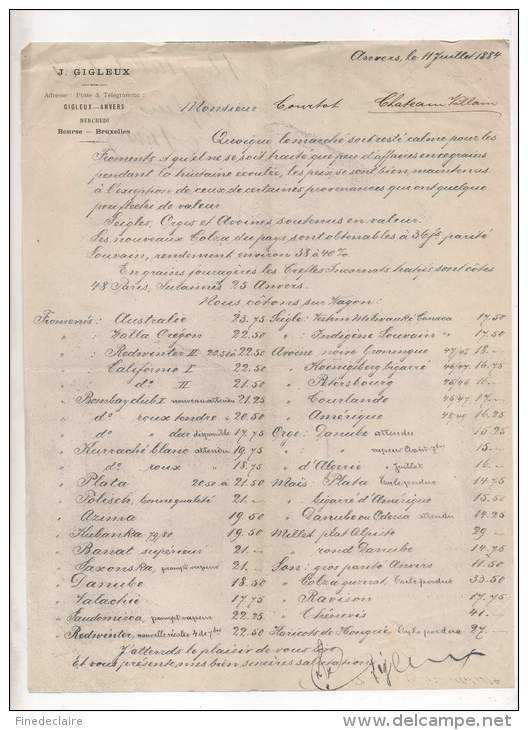 Anvers, le 11 Juillet 1884
J. GIGLEUX
Adresse: Poste & Télégramme:
GIGLEUX—ANVERS
MERCREDI
Bourse — Bruxelles
Monsieur Courtot Chateau Villain
Quoique le marché soit resté calme pour les
Froments & qu'il ne se soit traité que peu d'affaires en ces grains
pendant la huitaine écoulée, les prix se sont bien maintenus
à l'exception de ceux de certaines provenances qui ont quelque
peu fléchi de valeur.
Seigles, Orges et Avoines soutenus en valeur.
Les nouveaux Colza du pays sont obtenables à 36 fs. parité
Louvain, rendement environ 38 à 40%.
En grains fouragères les Trèfles Incarnats traités sont côtés
48 Paris, 25 Anvers.
Nous côtons sur Wagon:
Froments: Australie 23.75 Seigle: Milwaukée Canada 17.50
" : Walla Orégon 22.50 " : Indigène Louvain " 17.50
" : Redwinter II 22.50 à 22.50 Avoine noire Groningue 47/48 18.—
" Californie I 22.50 " Koenigsberg bigarré 46/47 16.75
" do II 21.50 " Pétersbourg 45/46 16.—
" Bombay club I nouveau attendu 21.25 " Courlande 46/47 17.—
" do roux tendre " 20.50 " Amérique 48/49 16.25
" do " dur disponible 17.75 Orge: Danube attendu 15.25
" Kurrachée blanc attendu 19.75 " " 15.—
" do roux " 18.75 " d'Algérie " juillet 16.—
" Plata 20.50 à 21.50 Maïs: Plata toile perdue 14.75
" Polish, bonne qualité 21.— " bigarré d'Amérique 15.50
" Azima 19.50 " Danube ou Odessa attendu 14.25
" Kubanka 79/80 19.50 Millet plat Alpiste 29.—
" Banat supérieur 21.— " rond Danube 14.75
" Saxonska, prompt vapeur 21.— Son: gros parité Anvers 11.50
" Danube 18.50 " Colza toile perdue 33.50
" Valachie 17.75 " Ravison 17.75
" Saudomirca, prompt vapeur 22.25 " Chénevis 41.—
" Redwinter, nouvelle récolte 22.50 Haricots de Hongrie, toile perdue 27.—
J'attends le plaisir de vous lire
Et vous présente mes bien sincères salutations
Gigleux
Finedeclaire
delcampe.net